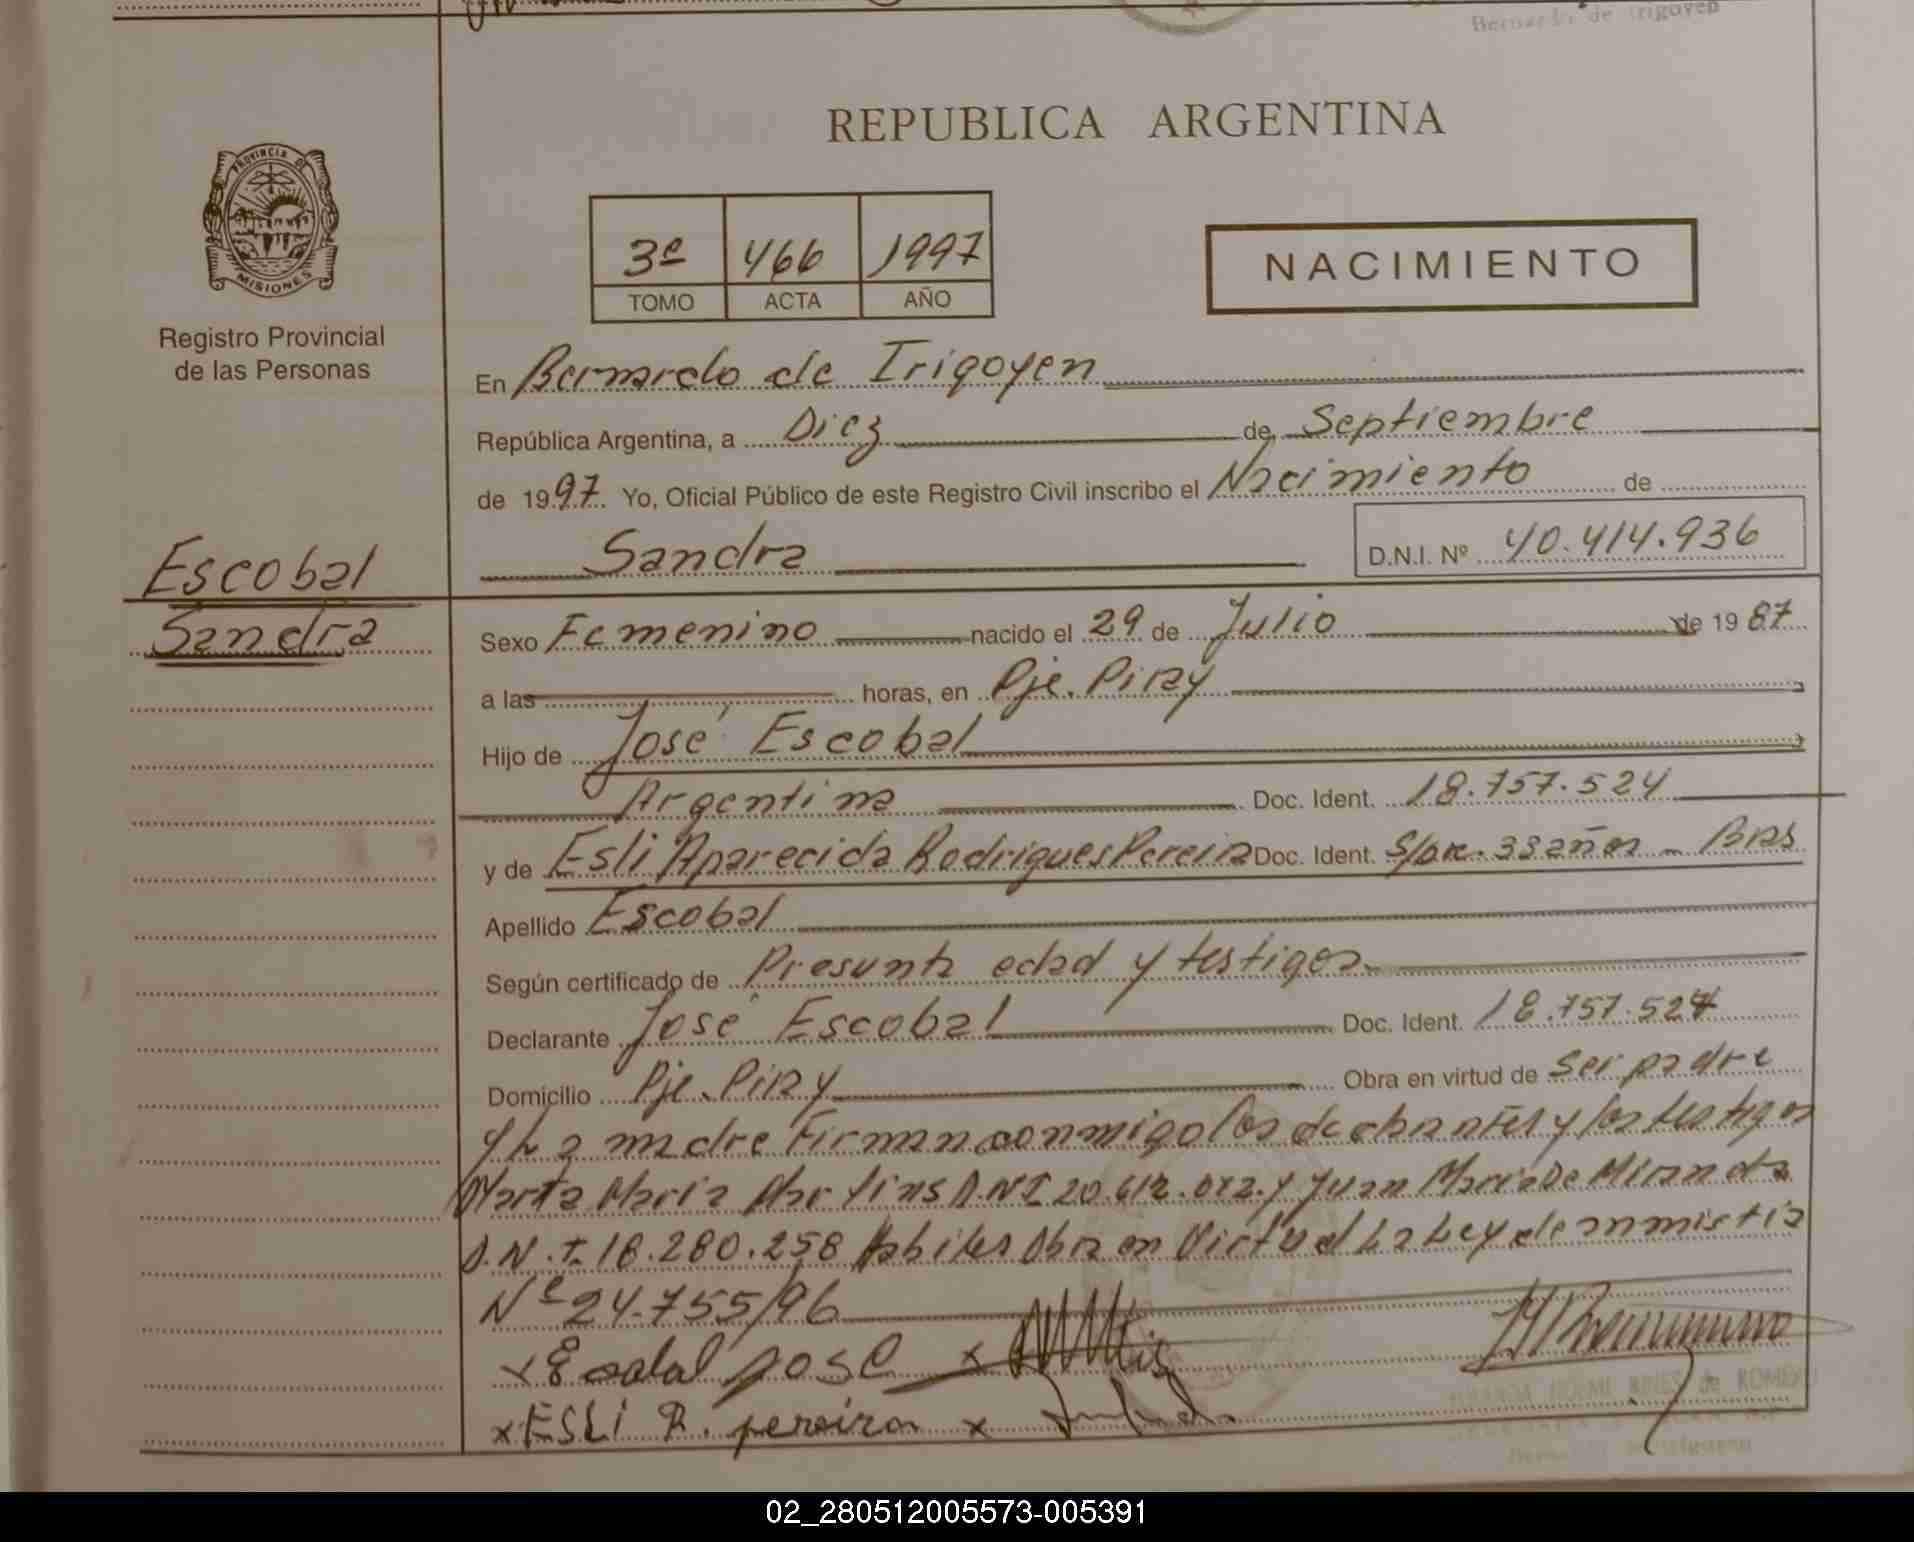 Bernardo de Irigoyen
REPUBLICA ARGENTINA
PROVINCIA DE
MISIONES
Registro Provincial
de las Personas
3º 466 1997
TOMO ACTA AÑO
NACIMIENTO
En Bernardo de Irigoyen
República Argentina, a Diez de Septiembre
de 1997. Yo, Oficial Público de este Registro Civil inscribo el Nacimiento de
Sandra D.N.I. Nº 40.414.936
Escobal
Sandra
Sexo Femenino nacido el 29 de Julio de 1987
a las horas, en Pje. Piray
Hijo de José Escobal
Argentina Doc. Ident. 18.757.524
y de Esli Aparecida Rodrigues Pereira Doc. Ident. 33 años - Bras
Apellido Escobal
Según certificado de Presunta edad y testigos
Declarante José Escobal Doc. Ident. 18.757.524
Domicilio Pje. Piray Obra en virtud de ser padre
y la madre Firman conmigo los y los testigos
Marta María Martins D.N.I 20.612. y Juan María De Miranda
D.N.I. 18.280.258 Habiles Obra en Virtud La Ley de ammistia
Nº 24.755/96
x Escobal jose x
x ESLI R. pereira x
NOEMI de ROMERO
02_280512005573-005391